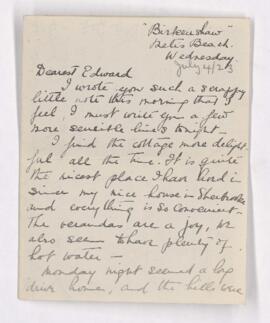 "Birkenshaw"
Metis Beach.
Wednesday
July 4/23
Dearest Edward
I wrote you such a scrappy
little note this morning that I
feel I must write you a few
more sensible lines tonight.
I find the cottage more delight
ful all the time. It is quite
the nicest place I have lived in
since my nice house in Sherbrooke
and everything is so convenient.
The verandas are a joy, we
also seem to have plenty of
hot water –
Monday night seemed a long
drive home, and the hills were